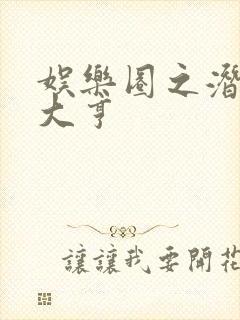 娱樂圈之潛
大亨
讓讓我要開花